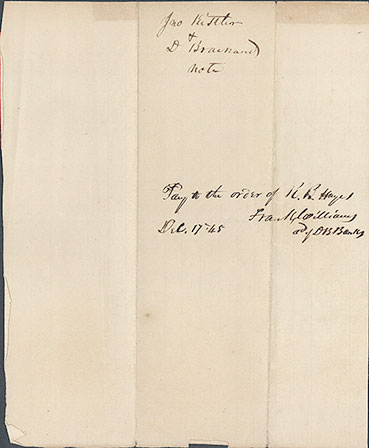 Jno Kistler
&
D Brainard
Note
Pay to the order of R. B. Hayes
Frank Williams
Dec. 17 '45
of D B Banks